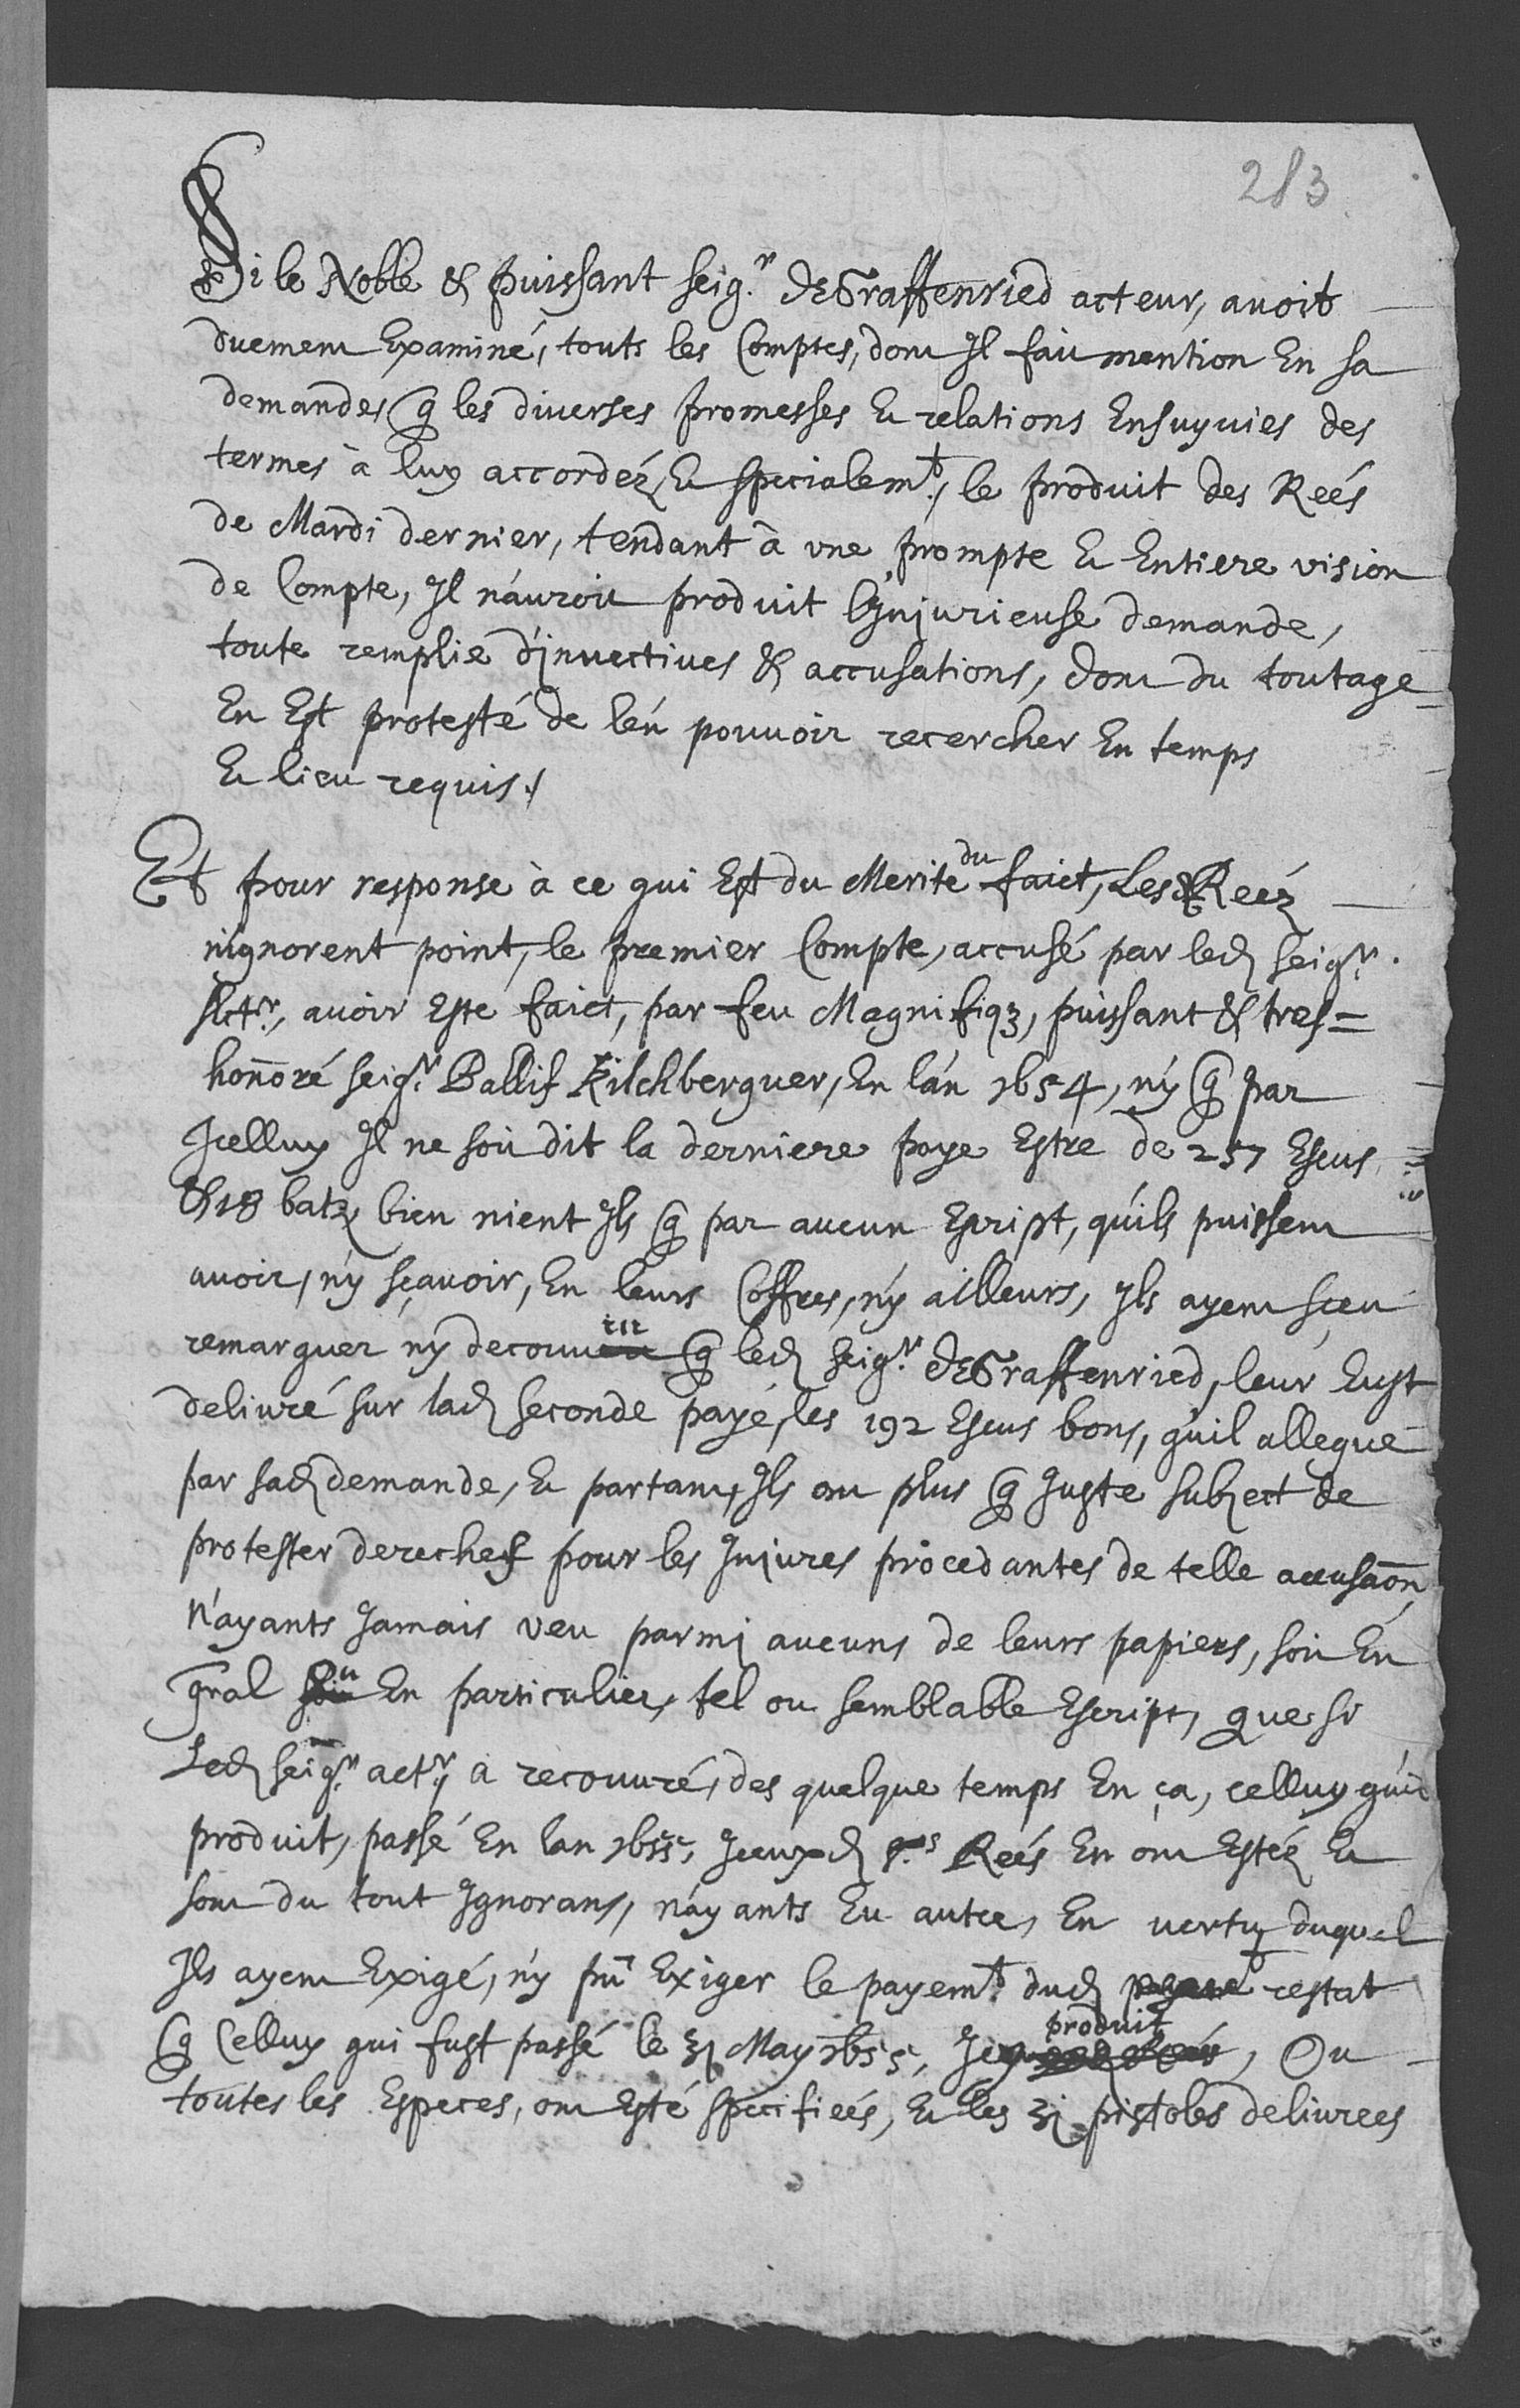 283
Si le Noble & puissant seig.r de Graffenried acteur, auoit
duement Examiné, touts les Comptes, dont Il fait mention En sa
demande, & les diverses promesses et relations Ensuyuies des
termes à luy accordéz, et specialem.t, le produit des Reés
de Mardi dernier, tendant à vne prompte et Entiere vision
de Compte, Il n'auroit produit l'Injurieuse demande,
toute remplie d'inuectiues & accusations, dont du toutage
En Est protesté de l'en pouuoir recercher En temps
et lieu requis./
Et pour response à ce qui Est du Merite du faict, Les Reéz
n'ignorent point, le premier Compte, accusé par led seig.r
Act.r, auoir Este faict, par feu Magnifiq3, puissant & tres=
honnoré seig.r Ballif Kilchberguer, En l'an 1654, n'y q par
Icelluy Il ne soit dit la derniere paye Estre de 257 Escus
& 18 batz, bien nient Ils q par aucun Escript, qu'ils puissent
auoir, n'y sçauoir, En leurs Coffres, n'y ailleurs, Ils ayent sçeu
remarquer n'y decouurir q led seig.r de Graffenried, leur Eust
deliuré sur lad seconde paye, les 192 Escus bons, qu'il allegue
par sad demande, et partant, Ils ont plus q Juste subject de
protester derechef pour les Injures procedantes de telle accusaon,
n'ayants Jamais veu parmi aucuns de leurs papiers, soit En
gnal soit En particulier, tel ou semblable Escript, que si
Led seig.r act.r, a recouuré, des quelque temps En ça, celluy qu'il
produit, passé En l'an 1655, Iceux d s.rs Reés En ont Estéz et
sont du tout Ignorans, n'ayants Eu autre, En vertu duquel
Ils ayent Exigé, n'y pû Exiger le payem.t dud restat
q Celluy qui fust passé le 31 May 1655, Icy produit, Ou
toutes les Especes, ont Esté specifieés, et les 31 pistoles deliurees